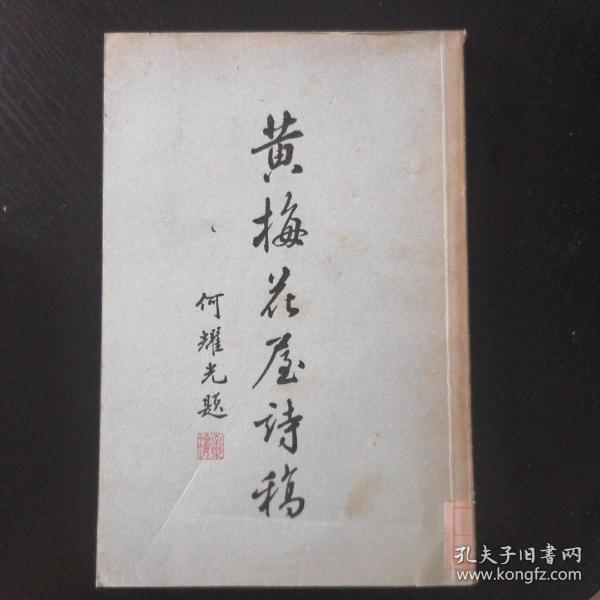 黄梅花屋詩稿
何耀光題
孔夫子旧书网
www.kongfz.com